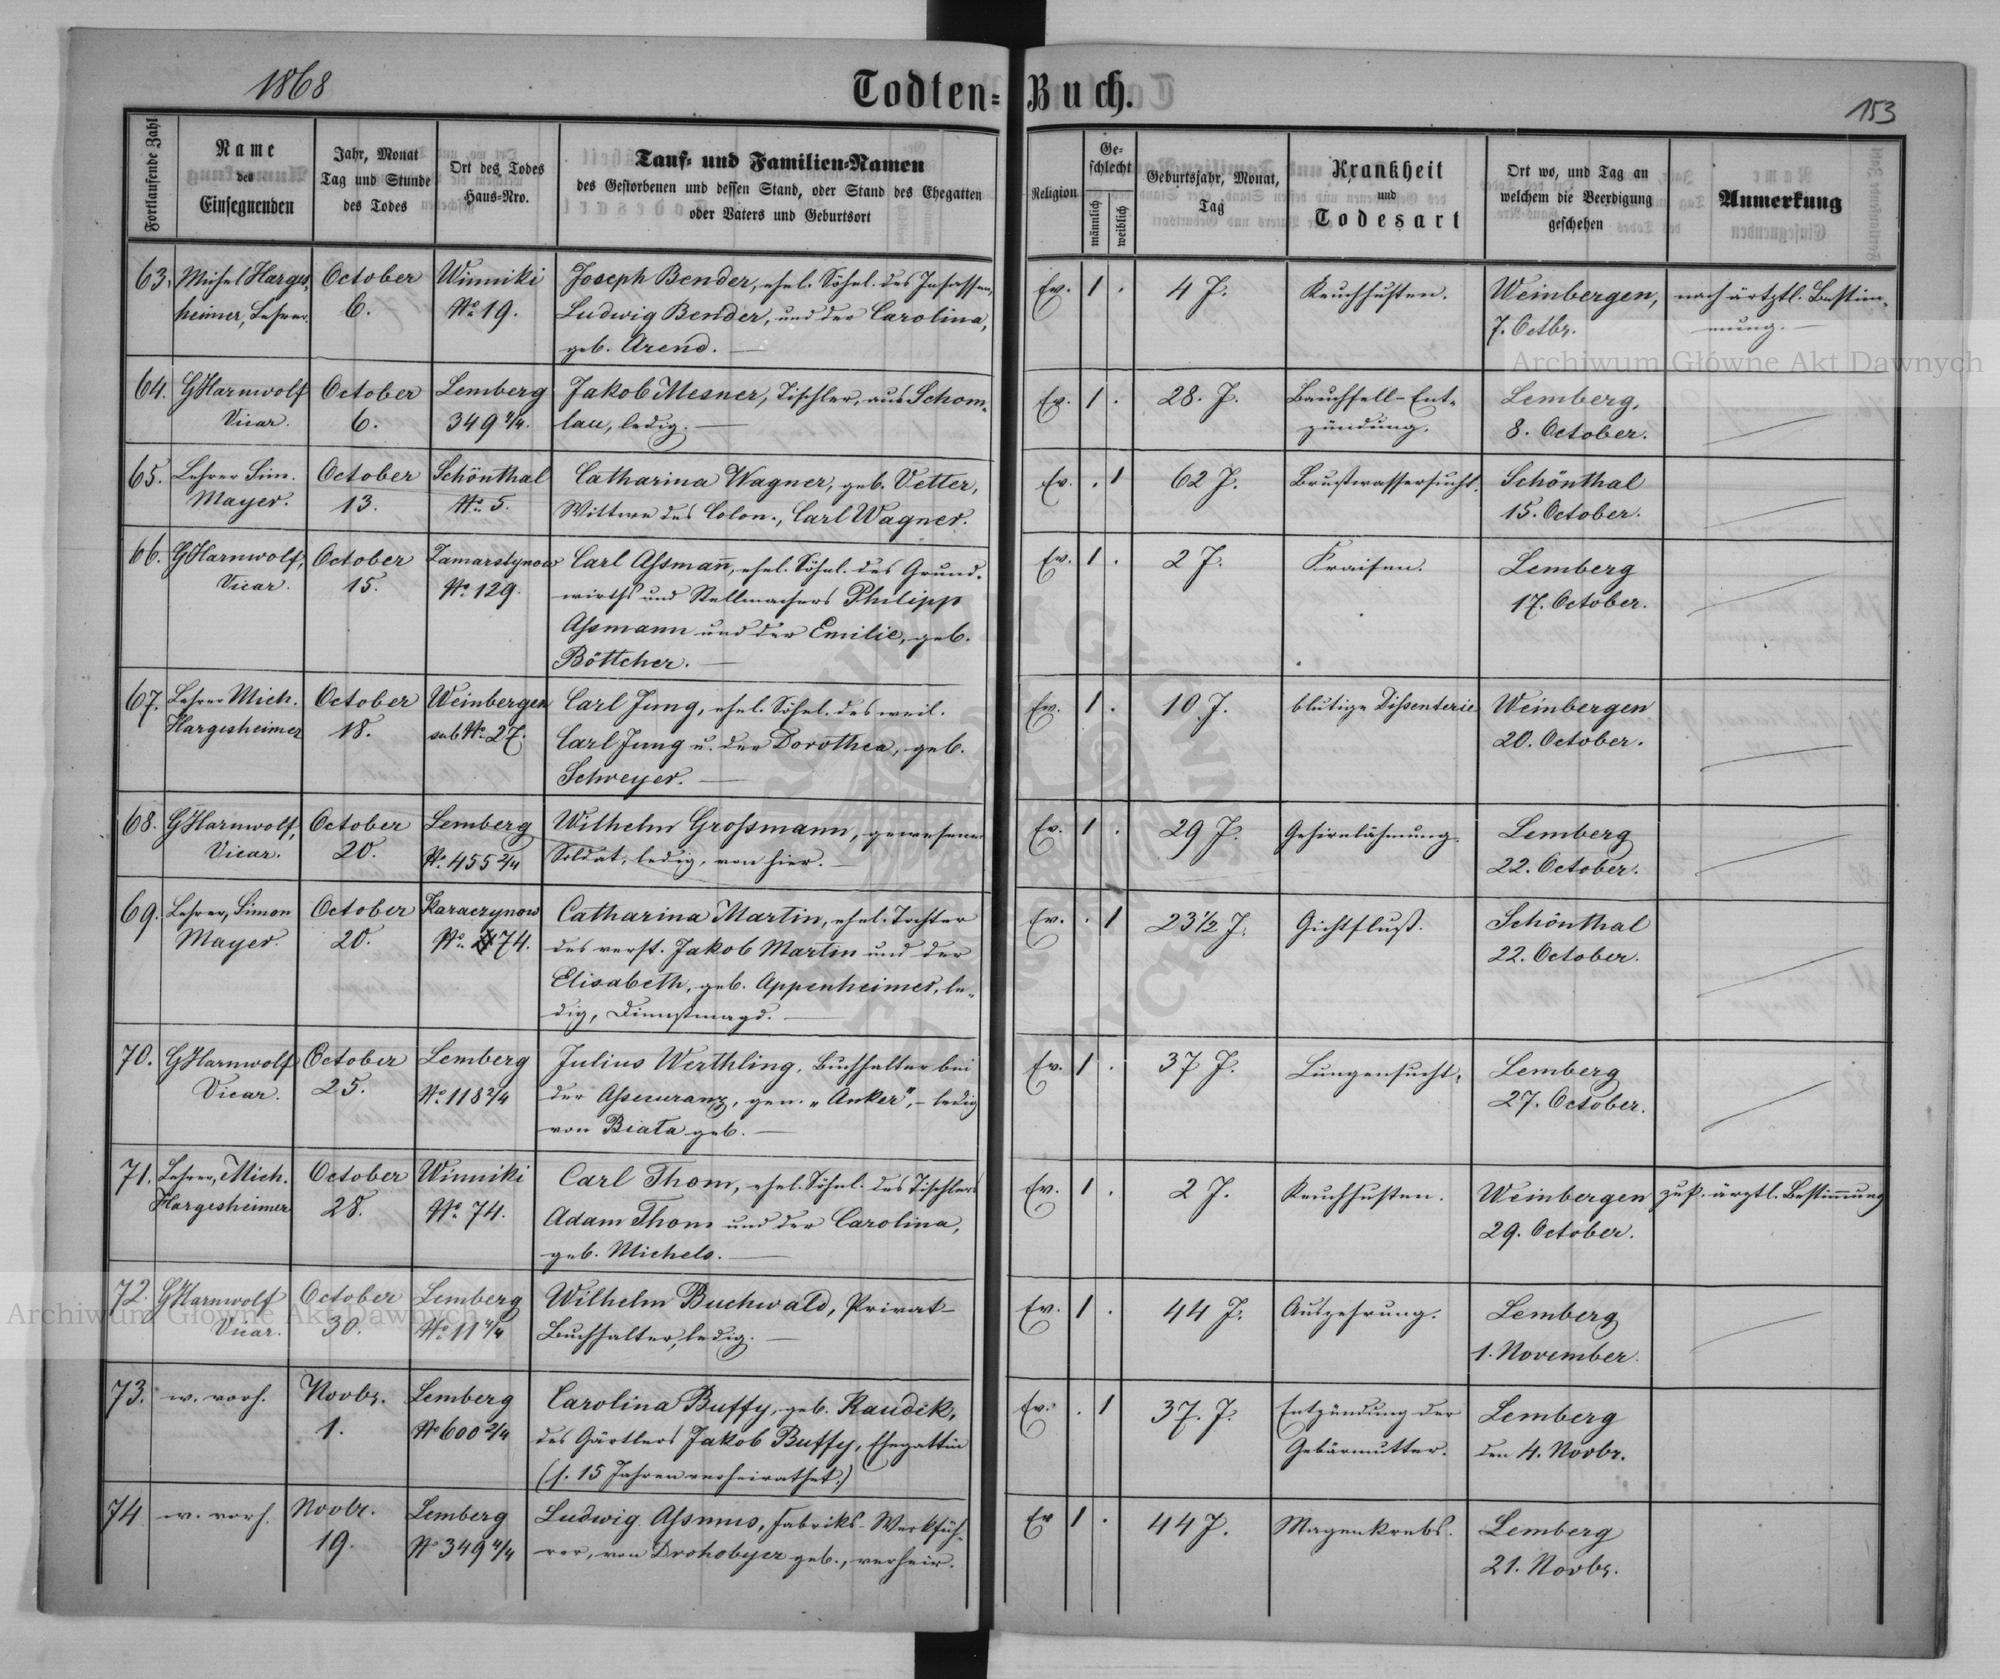 1868
Todten-Buch.
153
Fortlaufende Zahl
Name des Einsegnenden
Jahr, Monat Tag und Stunde des Todes
Ort des Todes Haus-Nro.
Tauf- und Familien-Namen
des Gestorbenen und dessen Stand, oder Stand des Ehegatten
oder Vaters und Geburtsort
Religion
Geschlecht
männlich
weiblich
Geburtsjahr, Monat, Tag
Krankheit und Todesart
Ort wo, und Tag an welchem die Beerdigung geschehen
Anmerkung
63. Michel Harges- October Winniki Joseph Bender, ehel. Söhnl. des Insassen, Ev. 1 . 4 J. Keuchhusten. Weinbergen, nach ärtztl. Bestim-
heimer, Lehrer. 6. No 19. Ludwig Bender, und der Carolina, 7. Octbr. mung. —
geb. Arend. —
64. GHarnwolf October Lemberg Jakob Mesner, Tischler, aus Schom- Ev. 1 . 28. J. Bauchfell-Ent- Lemberg,
Vicar. 6. 349 4/4. lau, ledig. — zündung. 8. October.
65. Lehrer Sim. October Schönthal Catharina Wagner, geb. Vetter, Ev. . 1 62 J. Brustwassersucht. Schönthal
Mayer. 13. No 5. Wittwe des Colon., Carl Wagner. 15. October.
66. GHarnwolf, October Zamarstynow Carl Assmann, ehel. Söhnl. des Grund- Ev. 1 . 2 J. Fraisen. Lemberg
Vicar. 15. No 129. wirths und Stellmachers Philipp 17. October.
Assmann und der Emilie, geb.
Böttcher. —
67. Lehrer Mich. October Weinbergen Carl Jung, ehel. Söhnl. des weil. Ev. 1 . 10. J. blutige Dissenterie Weinbergen
Hargesheimer 18. sub No. 27. Carl Jung u. der Dorothea, geb. 20. October.
Schweyer. —
68. GHarnwolf, October Lemberg Wilhelm Grossmann, gewesener Ev. 1 . 29 J. Gehirnlähmung. Lemberg
Vicar. 20. No. 455 2/4 Soldat, ledig, von hier. — 22. October.
69. Lehrer, Simon October Karaczynow Catharina Martin, ehel. Tochter Ev. . 1 23 1/2 J. Gichtfluß. Schönthal
Mayer. 20. No. 74. des verst. Jakob Martin und der 22. October.
Elisabeth, geb. Appenheimer, le-
dig, Dienstmagd. —
70. GHarnwolf October Lemberg Julius Werthling, Buchhalter bei Ev. 1 . 37 J. Lungensucht. Lemberg
Vicar. 25. No. 118 2/4 der Assecuranz, gen. „Anker", – ledig 27. October.
von Biala geb. —
71. Lehrer, Mich. October Winniki Carl Thom, ehel. Söhnl. des Tischlers Ev. 1 . 2 J. Keuchhusten. Weinbergen ärztl. Bestimmung
Hargesheimer 28. No 74. Adam Thom und der Carolina, 29. October.
geb. Michels. —
72. GHarnwolf October Lemberg Wilhelm Buchwald, Privat- Ev. 1 . 44 J. Auszehrung. Lemberg
Vicar. 30. No 11 4/4 Buchhalter, ledig. — 1. November.
73. w. vorh. Novbr. Lemberg Carolina Buffy, geb. Raudek, Ev. . 1 37. J. Entzündung der Lemberg
1. No 600 2/4 des Gärtlers Jakob Buffy, Ehegattin Gebärmutter. den 4. Novbr.
(s. 15 Jahren verheirathet.)
74 w. vorh. Novbr. Lemberg Ludwig Assmus, Fabriks-Werkfüh- Ev 1 . 44 J. Magenkrebs. Lemberg
19. No 349 4/4 rer, von Drohobycz geb., verheir. 21. Novbr.
Archiwum Główne Akt Dawnych
Archiwum Główne Akt Dawnych